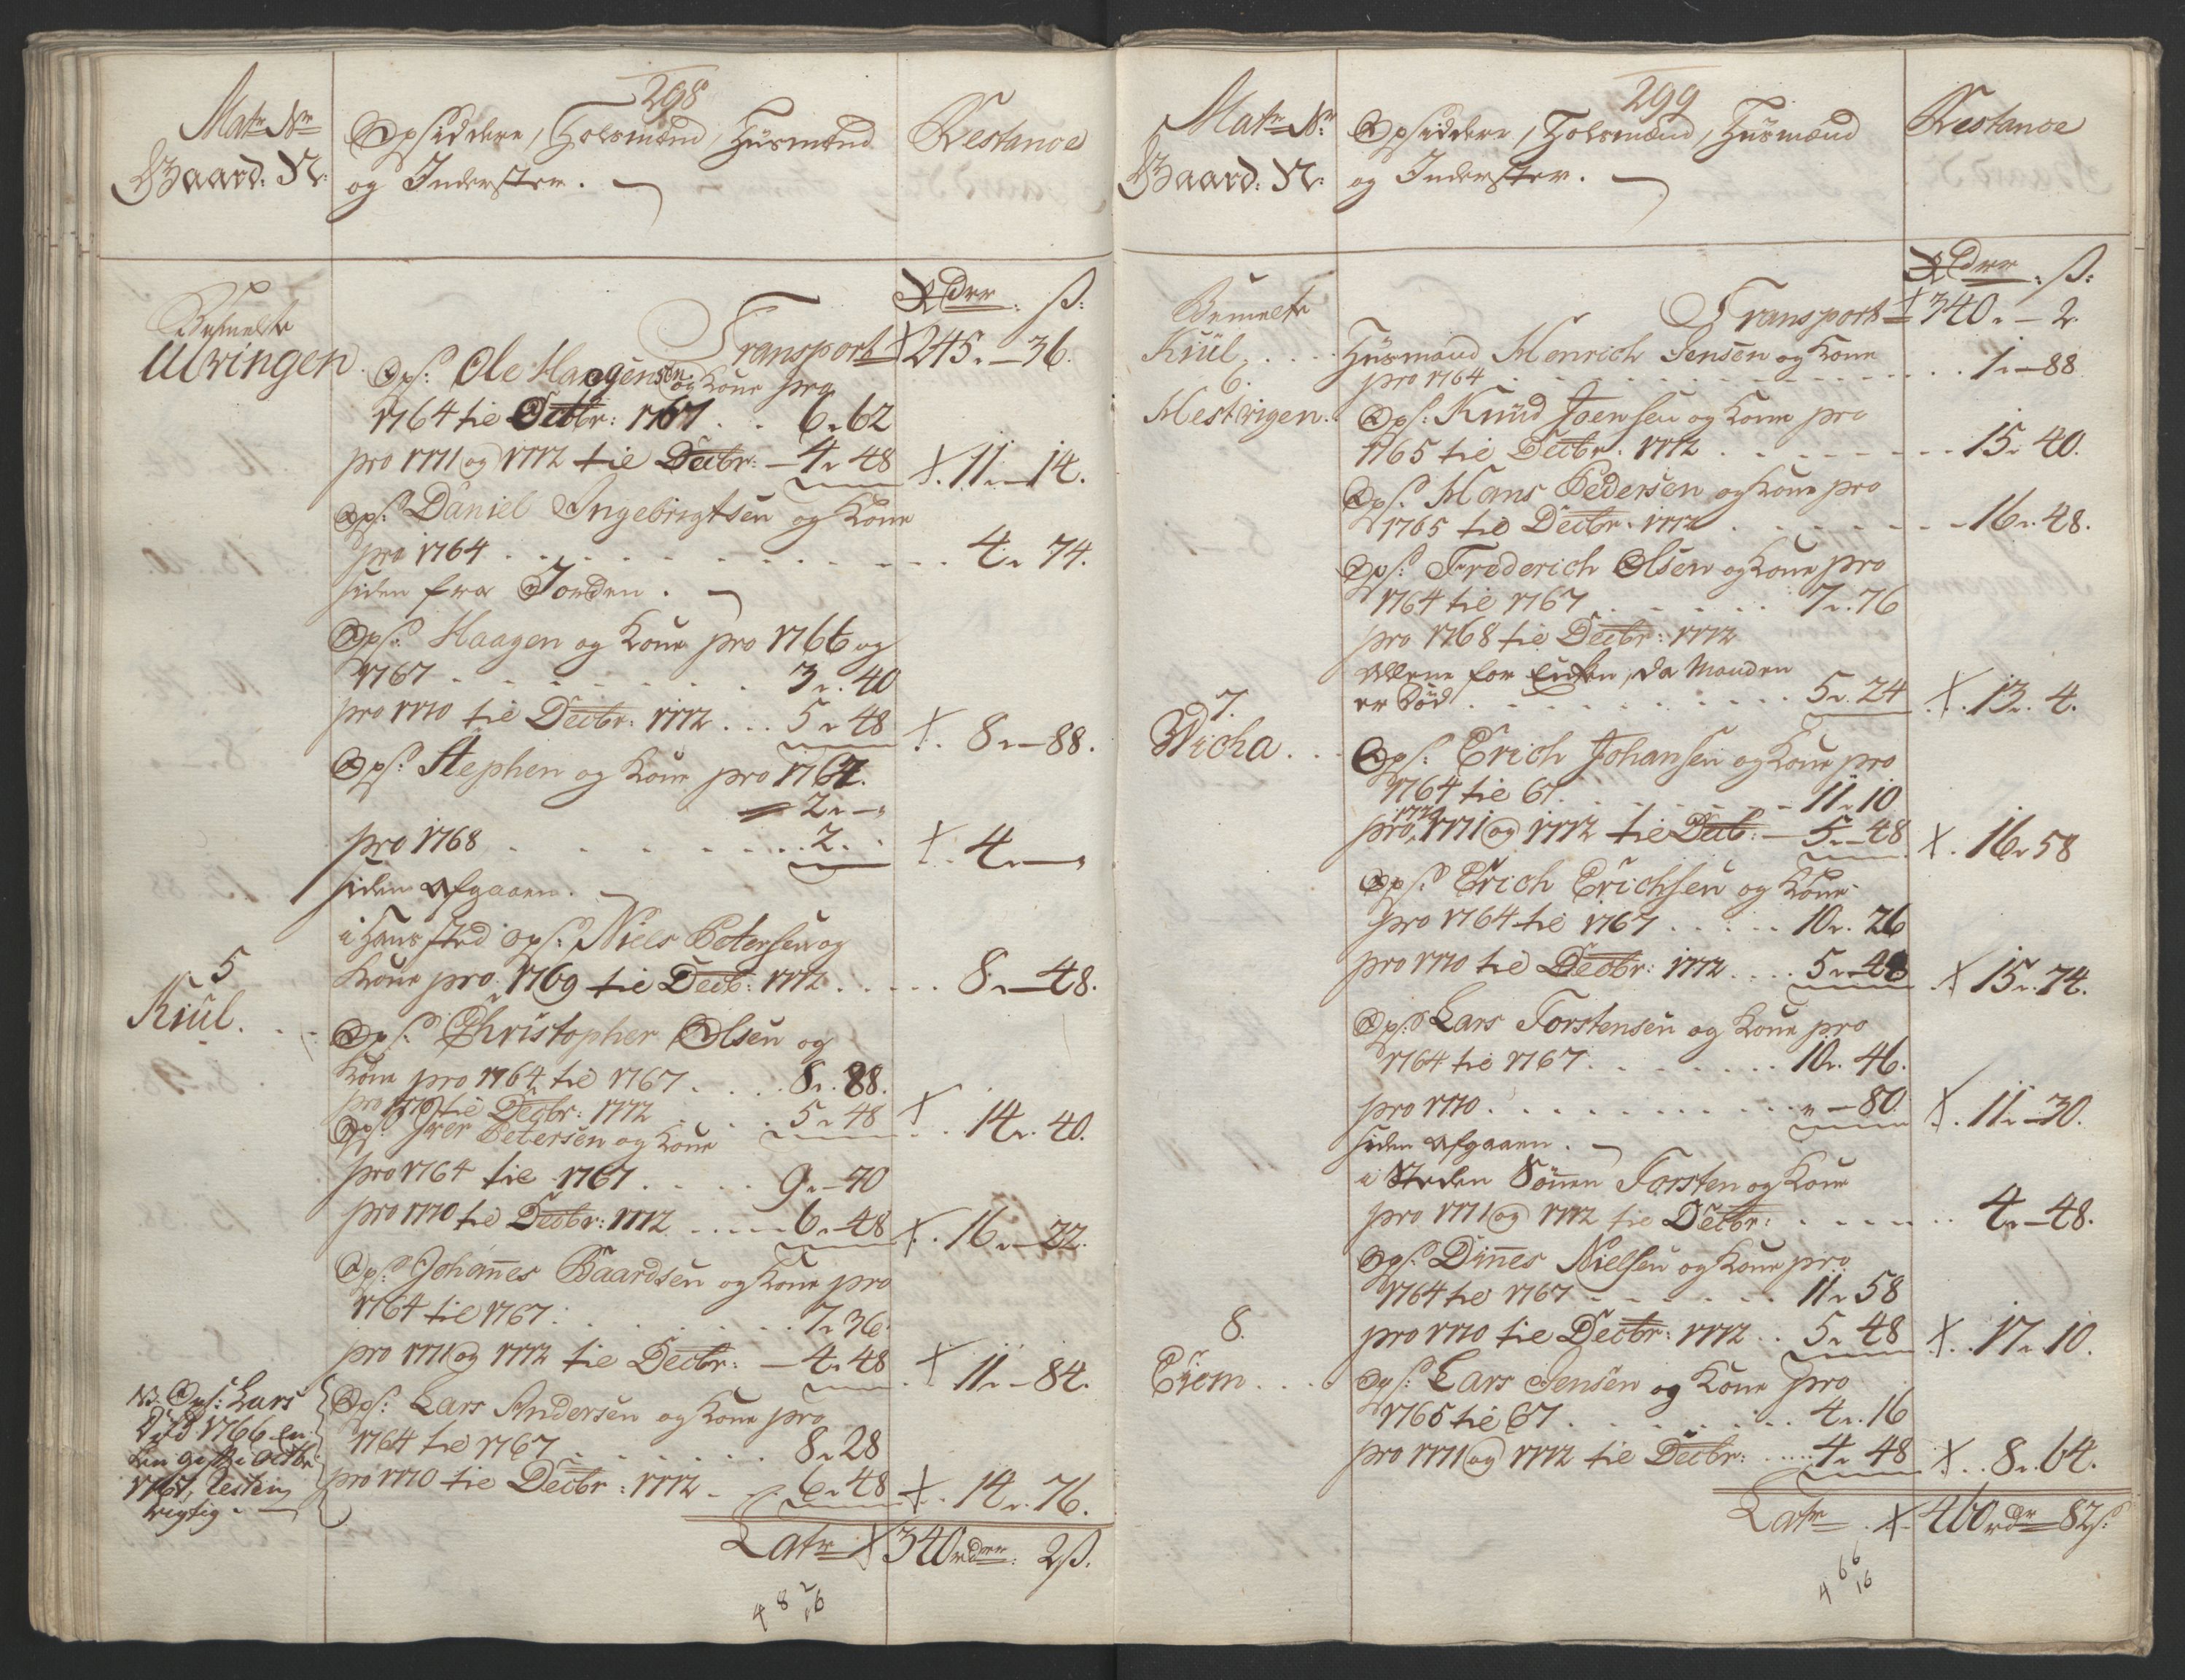 298
Matr Nr
Gaard: N:
Opsiddere, Holsmænd, Huusmænd
og Inderster.
Restance
Rdrr: ß:
Bemelte
Ulvingen
Transport 245 - 36.
Ops: Ole Haagensen og Kone pro
1764 til Decbr: 1767 . . 6. 62
pro 1771 og 1772 til Decbr: - 4. 48 11. - 14.
Ops: Daniel Ingebrigtsen og Kone
pro 1764 . . . 4. 74.
siden fra Jorden.
Ops: Haagen og Kone pro 1766 og
1767 . . . 3. 40
pro 1770 til Decbr: 1772 . . 5. 48 8. - 88.
Ops: Stephen og Kone pro 1767.
2. -
pro 1768 . . . 2. 4. -
siden afgaaen.
i Hans sted Ops: Niels Petersen og
Kone pro 1769 til Decb: 1772 . . . 8. - 48.
5
Kiül.
Ops: Christopher Olsen og
Kone pro 1764 til 1767 . . . 8. 88.
pro 1770 til Decbr: 1772 . . 5. 48 14. 40.
Ops: Iver Petersen og Kone
pro 1764 til 1767 . . . 9. - 70
pro 1770 til Decbr: 1772 . . . 6. - 48 16. - 22.
Ops: Johannes Baardsen og Kone pro
1764 til 1767: . . . 7. 36.
pro 1771 og 1772 til Decbr: - 4. 48 11. - 84.
NB. Ops: Lars
død 1766
1767,
rigtig.
Ops: Lars Andersen og Kone pro
1764 til 1767 . . . 8. 28
pro 1770 til Decbr: 1772 - . 6. 48 14. 76.
Latr 340 rdrr: 2 ß.
4 8 2
16
299
Matr Nr:
Gaard: N:
Opsiddere, Holsmænd, Huusmænd
og Inderster.
Restance
Rdrr: ß:
Bemelte
Kiül. . . .
Transport 340. - 2.
Huusmand Henrich Jensen og Kone
pro 1764 . . . 1. - 88.
6.
Hestvigen.
Ops: Knud Joensen og Kone pro
1765 til Decbr: 1772 . . . 15. 40.
Ops: Hans Pedersen og Kone pro
1765 til Decbr: 1772 . . . 16. 48.
Ops: Frederich Olsen og Kone pro
1764 til 1767 . . . 7. 76
pro 1768 til Decbr: 1772
allene for Enken, da Manden
er død . . . 5. 24 13. 4.
7.
Wicha . . .
Ops: Erich Johansen og Kone pro
1764 til 67 . . . 11. 10
1770
pro 1771 og 1772 til Decb: - 5. - 48 16. 58
Ops: Erich Erichsen og Kone
pro 1764 til 1767 . . . 10. 26
pro 1770 til Decbr: 1772 . . . 5. - 48 15. 74.
Ops: Lars Forstensen og Kone pro
1764 til 1767 . . . 10. 46.
pro 1770 . . . - 80. 11. - 30.
siden afgaaen.
i Steden Sönnen Forsten og Kone
pro 1771 og 1772 til Decbr: . . . 4. - 48.
Ops: Dines Nielsen og Kone pro
1764 til 1767 . . . 11. 58
pro 1770 til Decbr: 1772 . . 5. 48 17. 10.
8.
Eiom . . .
Ops: Lars Jensen og Kone pro
1765 til 67 . . . 4. 16
pro 1771 og 1772 til Decbr: . . . 4. 48 8. 64.
Latr . 460 rdr 82 ß:
4 6 6
16